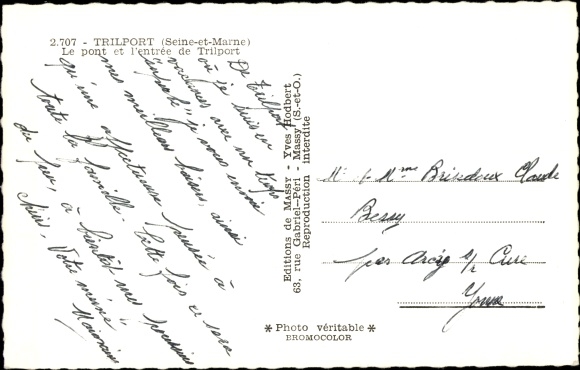 2.707 - TRILPORT (Seine-et-Marne)
Le pont et l'entrée de Trilport
De Trilport
où je suis en
vacances avec un temps
je vous envoie
mes meilleurs baisers ainsi
qu'une affectueuse pensée à
toute la famille. Cette fois ce sera
du peu, à bientôt mes
Votre
Editions de MASSY - Yves Hodbert
63, rue Gabriel-Péri - Massy (S.-et-O.)
Reproduction interdite
Mr & Mme Brisdoux Claude
Bessy
par Arcy s/ Cure
Yonne
* Photo véritable *
BROMOCOLOR